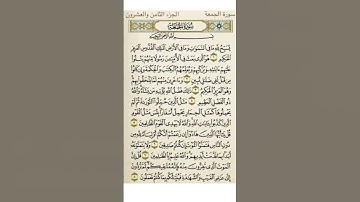 سورة الجمعة الجزء الثامن والعشرون
سورة الجمعة
بسم الله الرحمن الرحيم
يسبح لله ما في السموت وما في الأرض الملك القدوس العزيز
الحكيم ١ هو الذي بعث في الأمين رسولا منهم يتلوا
عليهم ءايته ويزكيهم ويعلمهم الكتب والحكمة وإن كانوا
من قبل لفي ضلل مبين ٢ وءاخرين منهم لما يلحقوا بهم
وهو العزيز الحكيم ٣ ذلك فضل الله يؤتيه من يشاء والله
ذو الفضل العظيم ٤ مثل الذين حملوا التورىة ثم لم
يحملوها كمثل الحمار يحمل أسفارا بئس مثل القوم
الذين كذبوا بءايت الله والله لا يهدي القوم الظلمين ٥
قل يأيها الذين هادوا إن زعمتم أنكم أولياء لله من دون
الناس فتمنوا الموت إن كنتم صدقين ٦ ولا يتمنونه
أبدا بما قدمت أيديهم والله عليم بالظلمين ٧ قل إن
الموت الذي تفرون منه فإنه ملقيكم ثم تردون
إلى علم الغيب والشهدة فينبئكم بما كنتم تعملون ٨